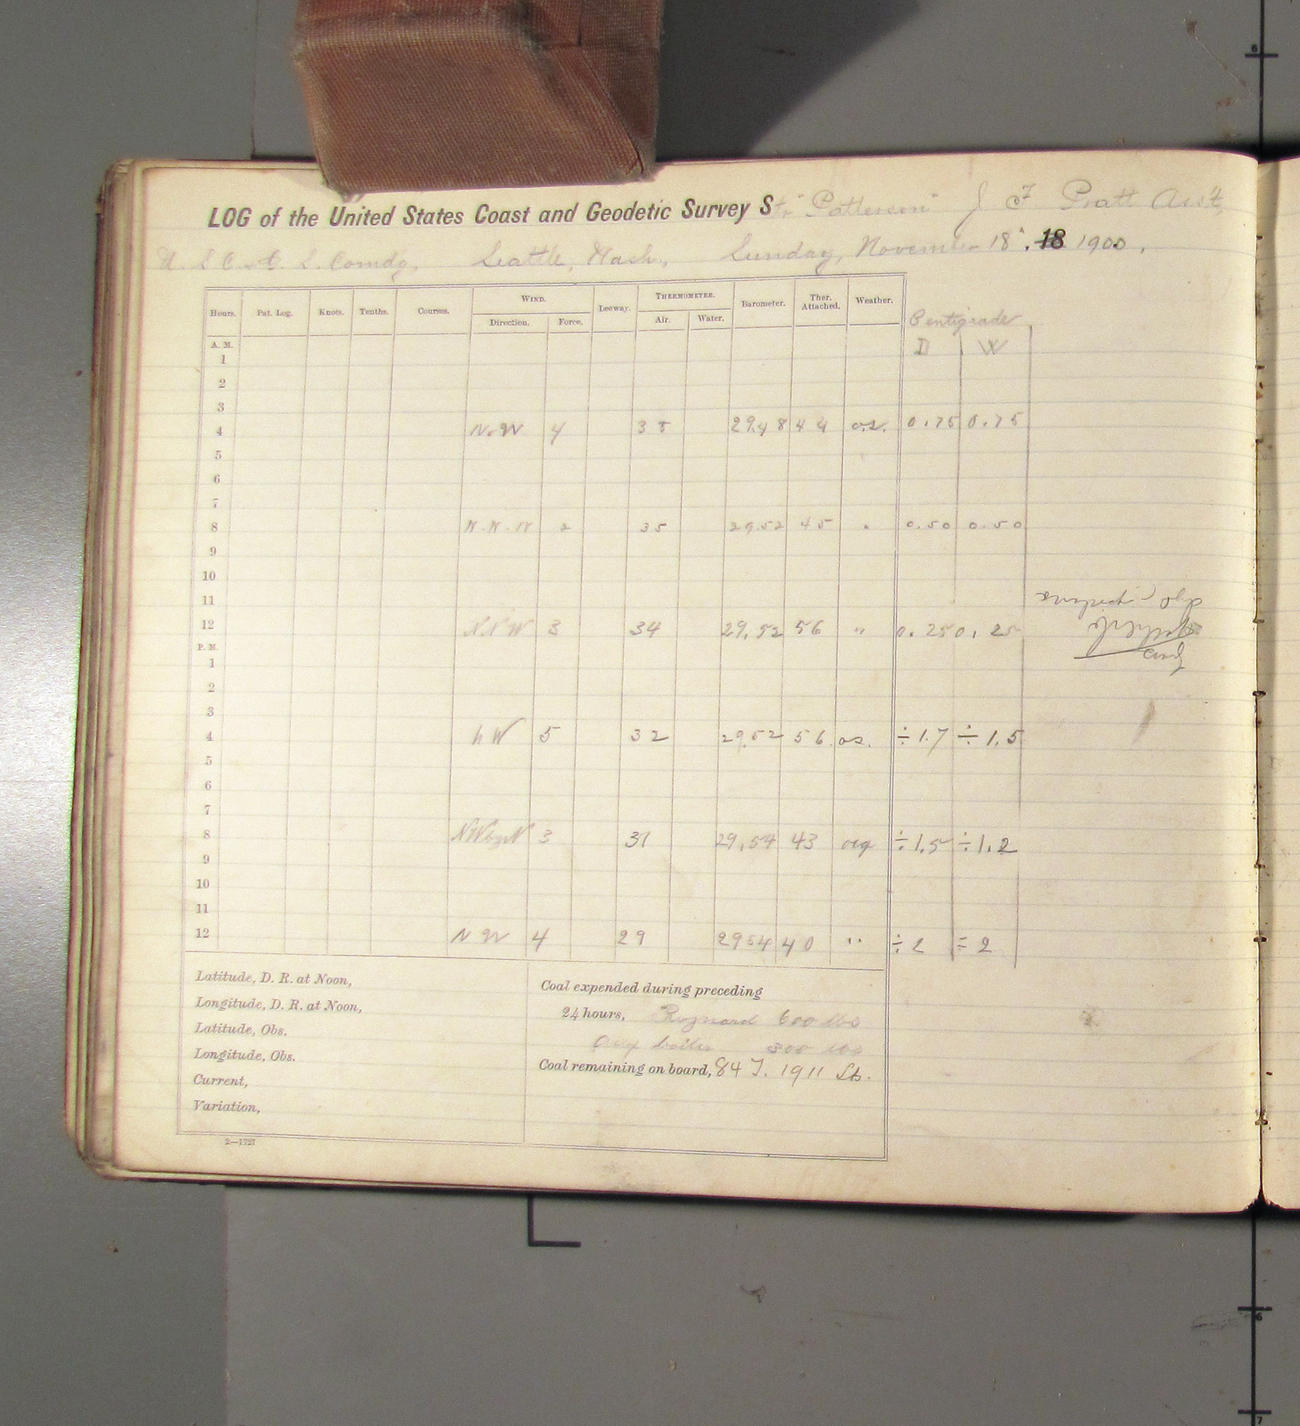 LOG of the United States Coast and Geodetic Survey Str "Patterson" J F Pratt Ass't,
U. S. C. & G. S. Comdg, Seattle, Wash., Sunday, November 18", 18 1900,
Hours. Pat. Log. Knots. Tenths. Courses. WIND. Leeway. THERMOMETER. Barometer. Ther. Attached. Weather. Centigrade
Direction. Force. Air. Water. D W
A. M.
1
2
3
4 N.W 4 38 29.48 44 o.s. 0.75 0.75
5
6
7
8 N.N.W 2 35 29.52 45 " 0.50 0.50
9
10
11
12 NNW 3 34 29.52 56 " 0.25 0.25
P. M.
1
2
3
4 NW 5 32 29.52 56 os. ÷1.7 ÷1.5
5
6
7
8 NWbyN 3 31 29.54 43 ÷1.5 ÷1.2
9
10
11
12 NW 4 29 29 54 40 " ÷2 ÷2
Latitude, D. R. at Noon,
Longitude, D. R. at Noon,
Latitude, Obs.
Longitude, Obs.
Current,
Variation,
Coal expended during preceding
24 hours, 600 lbs
Aux boiler 300 lbs
Coal remaining on board, 84 T. 1911 Lb.
2—1727
6
6
7